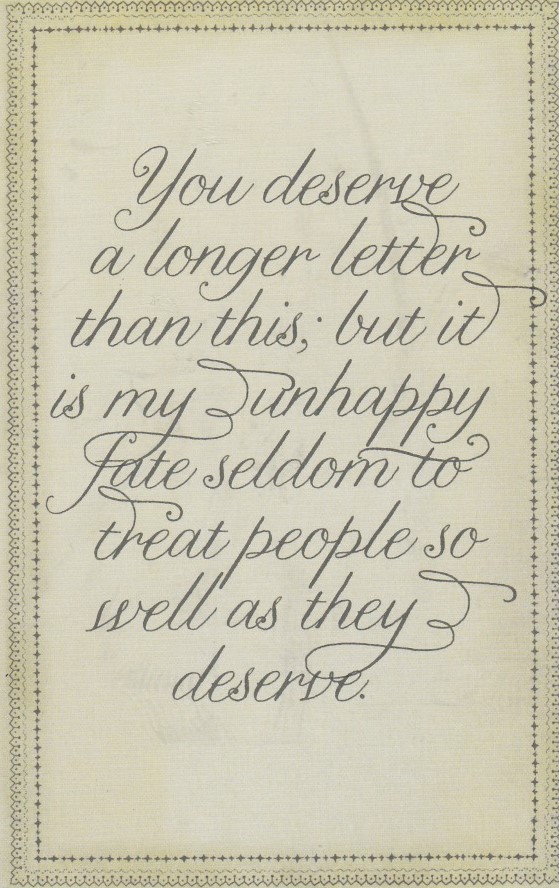 You deserve
a longer letter
than this; but it
is my unhappy
fate seldom to
treat people so
well as they
deserve.